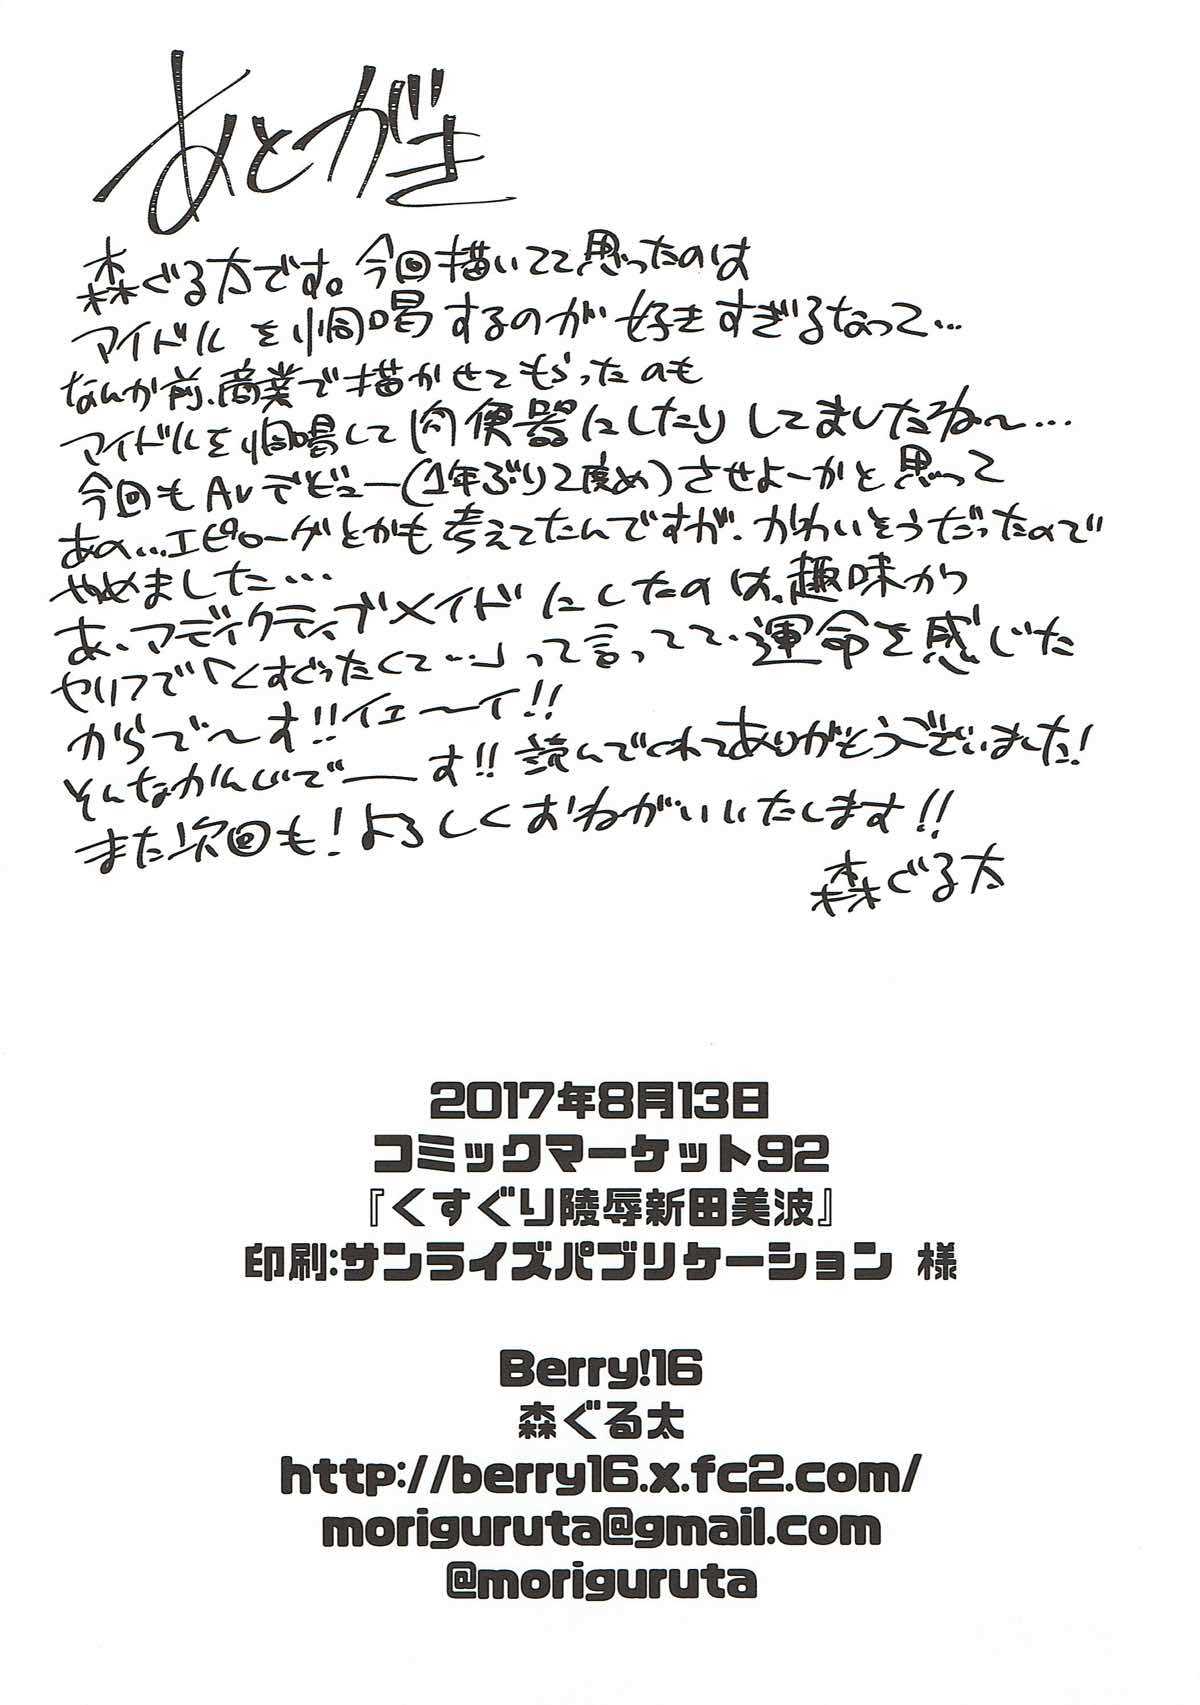 あとがき
森ぐる太です。今回描いてて思ったのは
アイドルを恫喝するのが好きすぎるなって…
なんか前、商業で描かせてもらったのも
アイドルを恫喝して肉便器にしたりしてましたねー…
今回もAVデビュー(1年ぶり2度め)させよーかと思って
あの…エピローグとかも考えてたんですが、かわいそうだったので
やめました…
あ、アディクティブメイドにしたのは、趣味から
セリフで「くすぐったくて…」って言ってて、運命を感じた
からで〜す!!イエ〜イ!!
そんなかんじでーす!!読んでくれてありがとうございました!
また次回も!よろしくおねがいいたします!!
森ぐる太
2017年8月13日
コミックマーケット92
『くすぐり陵辱新田美波』
印刷:サンライズパブリケーション 様
Berry!16
森ぐる太
http://berry16.x.fc2.com/
moriguruta@gmail.com
@moriguruta